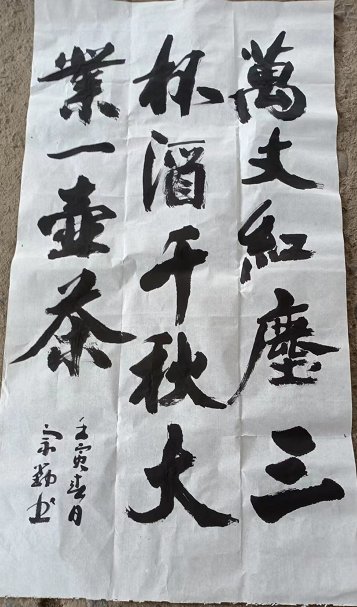 萬丈紅塵三
杯酒千秋大
業一壺茶
壬寅春日
宗勤书